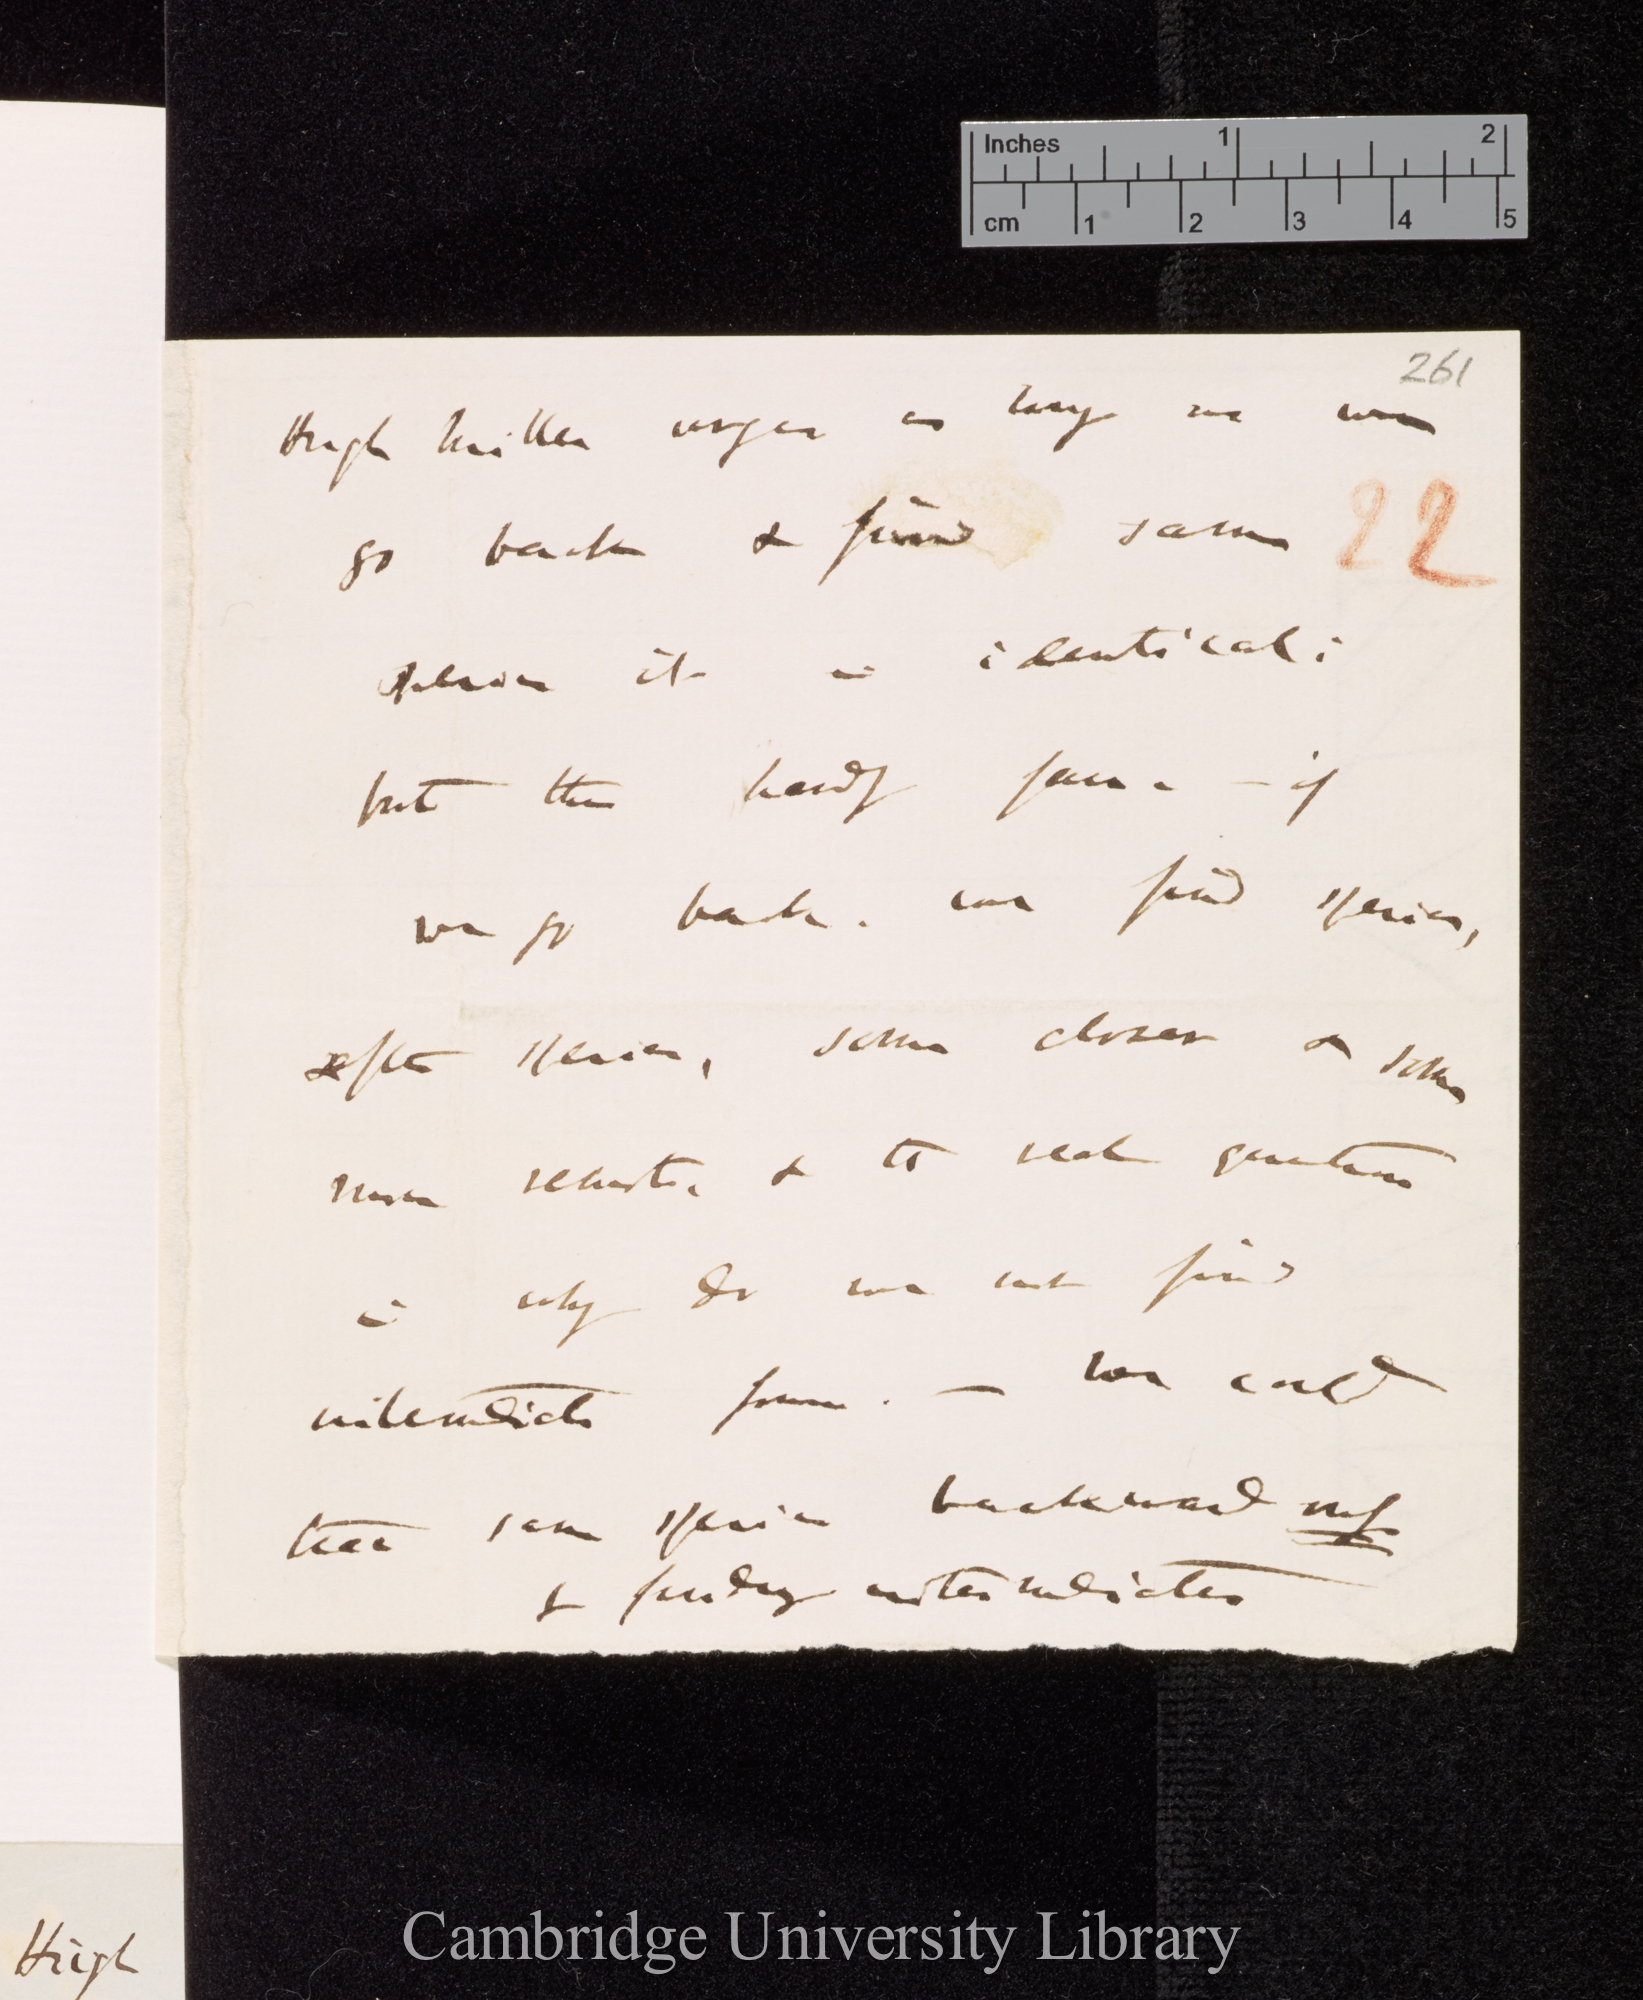 Inches 1 2
cm 1 2 3 4 5
261
Hugh Miller urges as long as we
22
go back & find same
species it is identical;
but this hardly fair — if
we go back. we find species,
after species, some closer & some
more remote, & the real question
is why do we not find
intermediate forms. — We could
trace same species backward
& finding intermediates
Hugh
Cambridge University Library